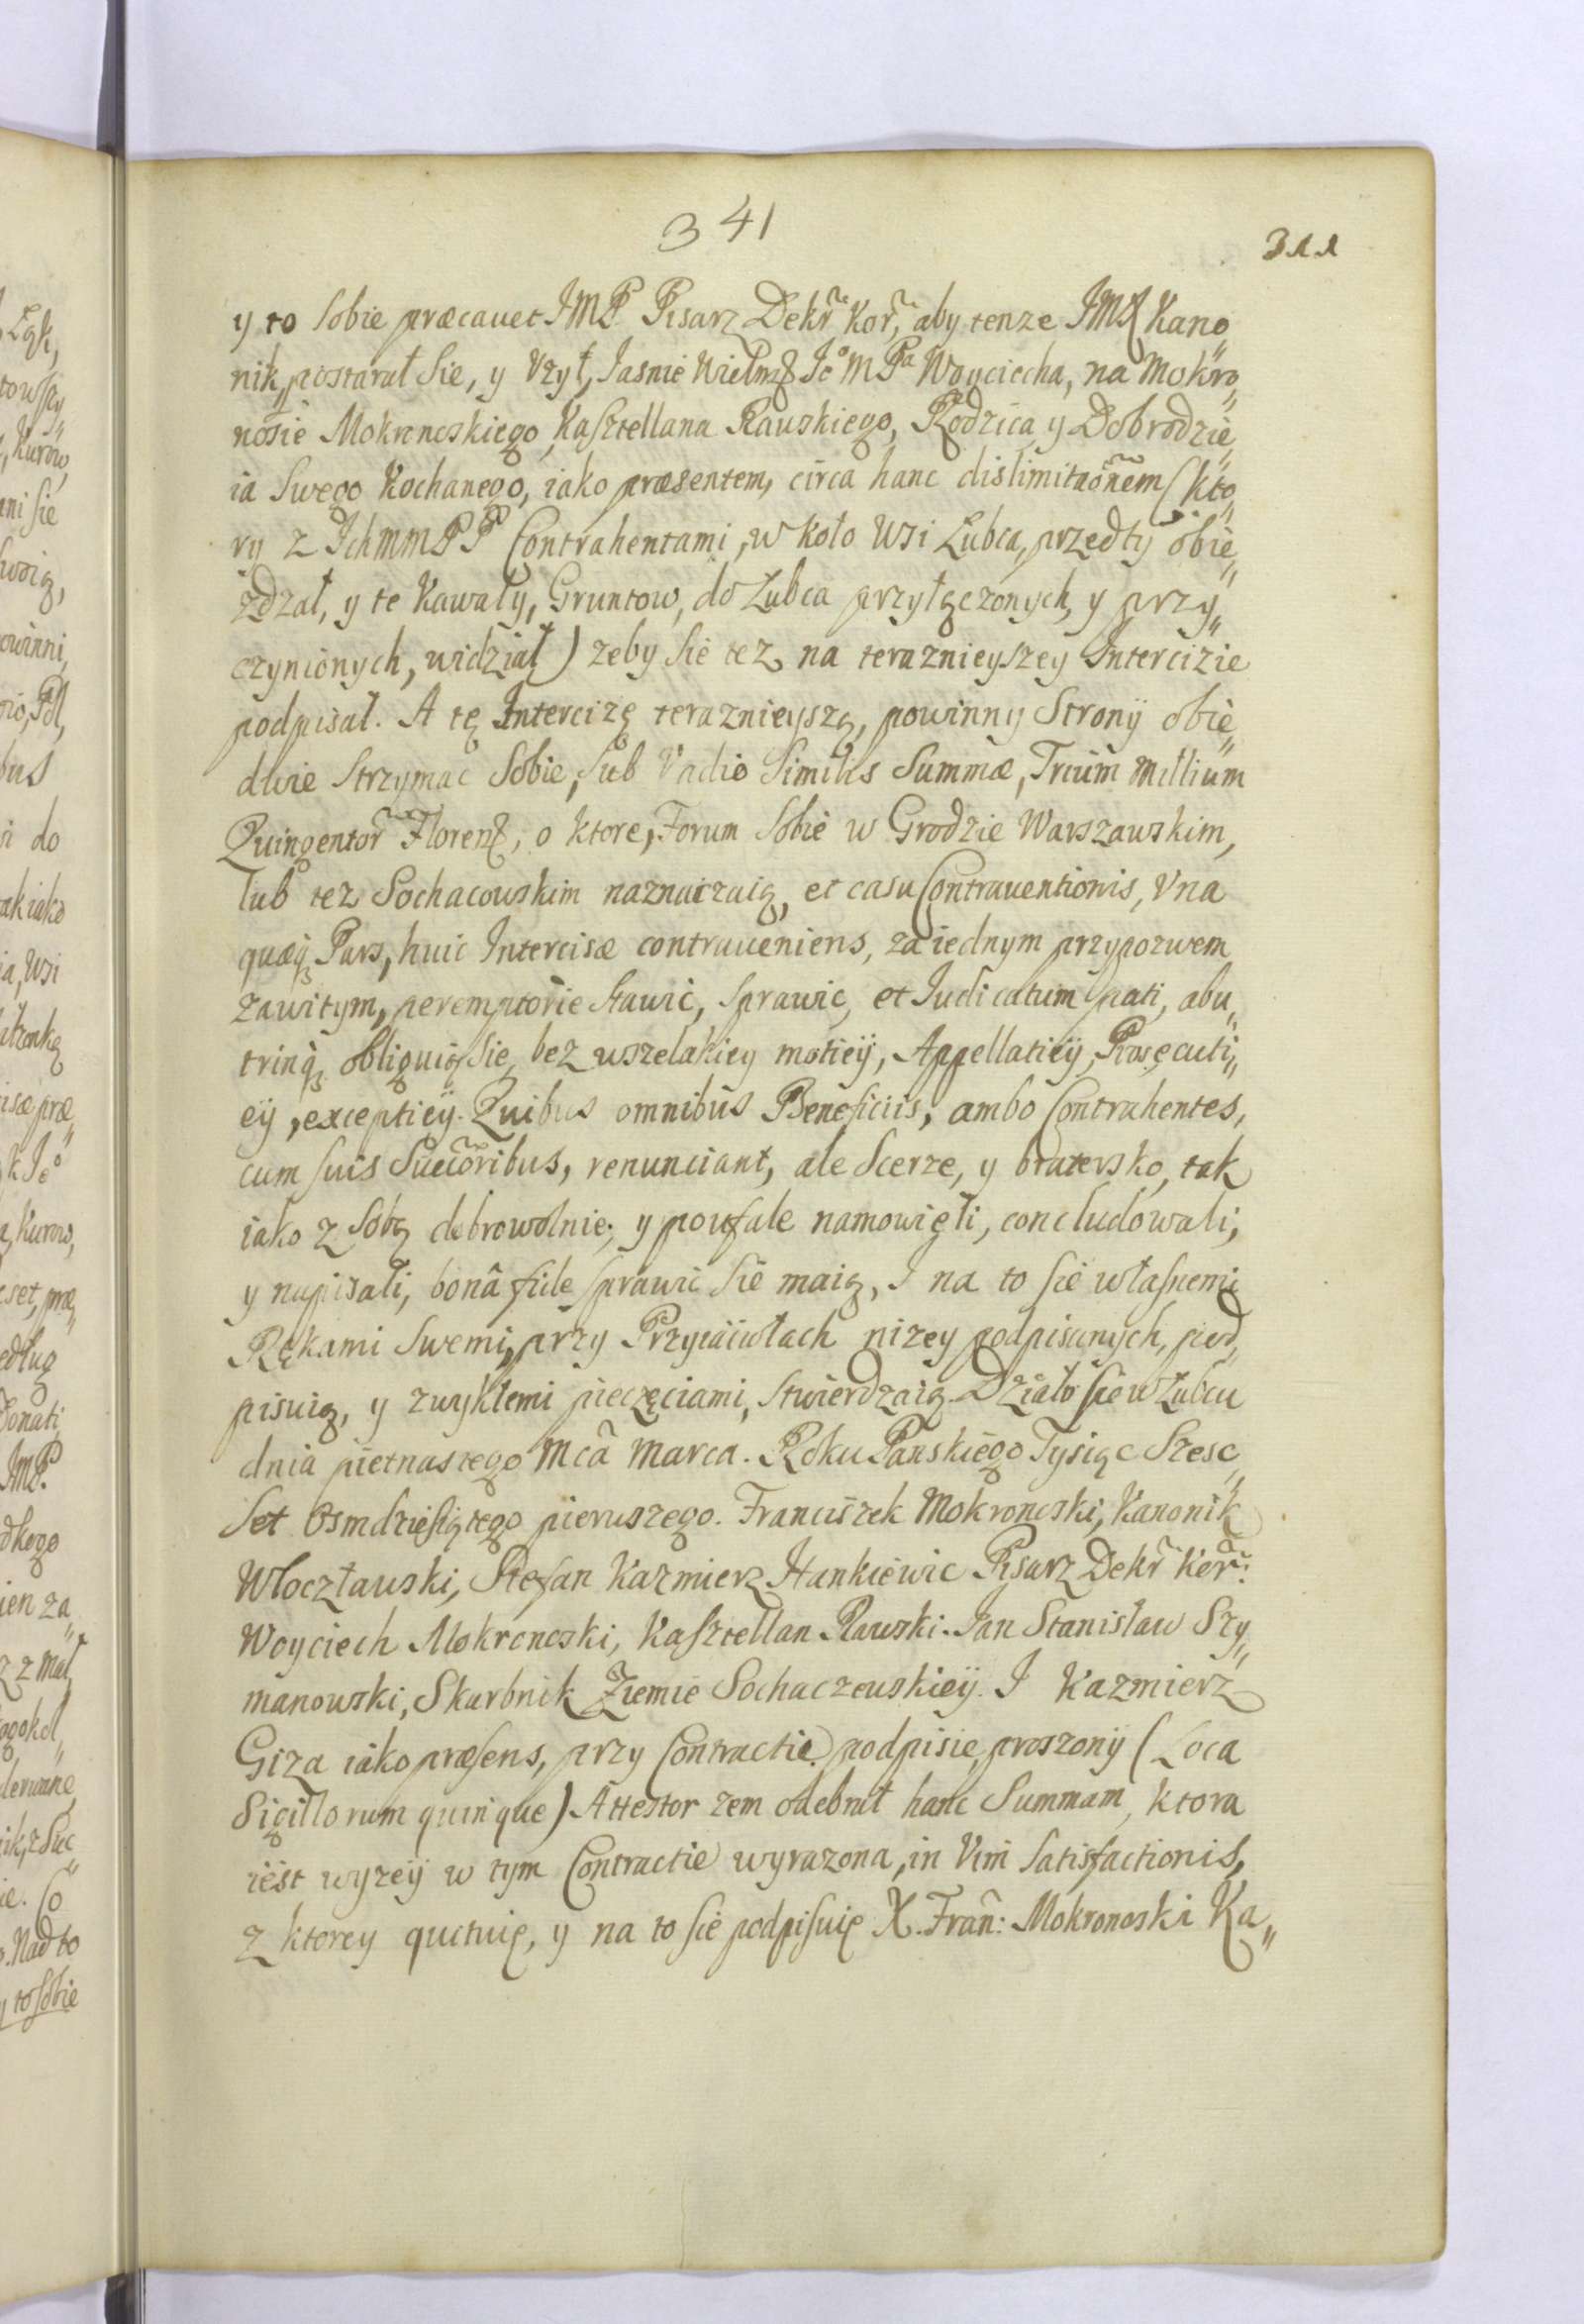 341
311
y to sobie præcavet JMP. Pisarz Dekr̃ Kor̃, aby tenze JMX Kano„
nik, postarał sie, y Vzył, Jasnie Wielmᵒ Jᵒ M Pᵃ Woyciecha, na Mokro„
nosie Mokronoskiego, Kasztellana Rauskiego, Rodzica y Dobrodzie„
ia Swego Kochanego, iako præsentem, circa hanc dislimitaõnem (kto„
ry z Ichmm PP Contrahentami, w koło Wsi Łubca, przedty obie„
zdzał, y te kawały, Gruntow, do Łubca przyłączonych, y przy„
czynionych, widział) zeby sie tez na teraznieyszey Intercizie
podpisał. A tę Intercizę teraznieyszą, powinny Strony obie„
dwie strzymac sobie, sub Vadio similis Summæ, Trium Millium
Quingentor̃ Floren, o ktore, Forum sobie w Grodzie Warszawskim,
lub tez Sochacowskim naznaczaią, et casu Contraventionis, Vna
quæq Pars, huic Intercisæ contraveniens, za iednym przypozwem
zawitym, peremptorie stawic, sprawic, et Judicatum pati, abu„
trinq obliguią sie, bez wszelakiey motiey, Appellatieÿ, Prosecuti„
eÿ, exceptieÿ. Quibus omnibus Beneficiis, ambo Contrahentes,
cum suis Succõribus, renunciant, ale Scerze, y bratersko, tak
iako z sobą dobrowolnie, y poufale namowięli, concludowali,
y napisali, bonâ fide sprawic sie maią, I na to sie własnemi
Rękami swemi, przy Przyiaciołach nizey podpisanych, pod„
pisuią, y zwykłemi pieczęciami, stwierdzaią. Działo sie w Łubcu
dnia pietnastego Mcã Marca. Roku Panskiego Tysiąc Szesc„
set osmdziesiątego pierwszego. Franciszek Mokronoski, Kanonik
Włocztawski, Stefan Kazmierz Hankiewic Pisarz Dekr̃ Kor̃:
Woyciech Mokronoski, Kasztellan Rawski. Jan Stanisław Szy„
manowski, Skarbnik Ziemie Sochaczewskieÿ. I Kazmierz
Giza iako præsens, przy Contractie podpisie, proszony (Loca
Sigillorum quinque) Attestor zem odebrał hanc Summam, ktora
iest wyzeÿ w tym Contractie wyrazona, in Vim Satisfactionis,
z ktorey quctuię, y na to sie podpisuię X. Frañ: Mokronoski Ka„